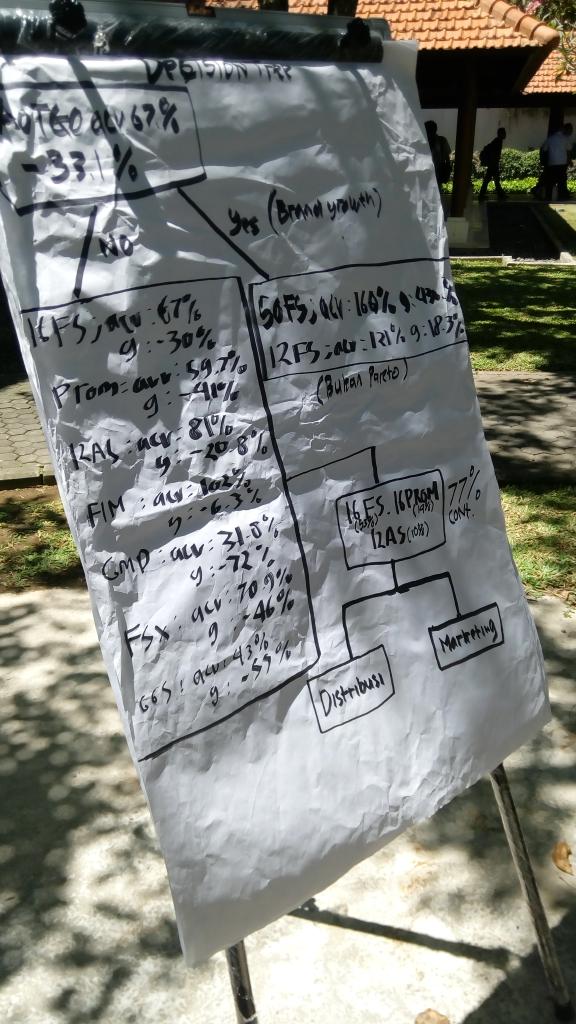 DECISION TREE
AUTGO acv 67%
-33.1%
NO
Yes (Brand growth)
16FS; acv: 67%
g: -30%
Prom: acv: 59.7%
g: -41%
12AS: acv: 81%
g: -20.8%
FIM: acv: 102%
g: -6.3%
GMP: acv: 31.8%
g: -72%
FSX: acv: 70.9%
g: -46%
GGS: acv: 43%
g: -55%
50FS; acv: 160% g:
12FS; acv: 121% g: 18.3%
(Bukan Pareto)
16FS. 16PROM
12AS (10%)
77%
CONT.
Distribusi
Marketing